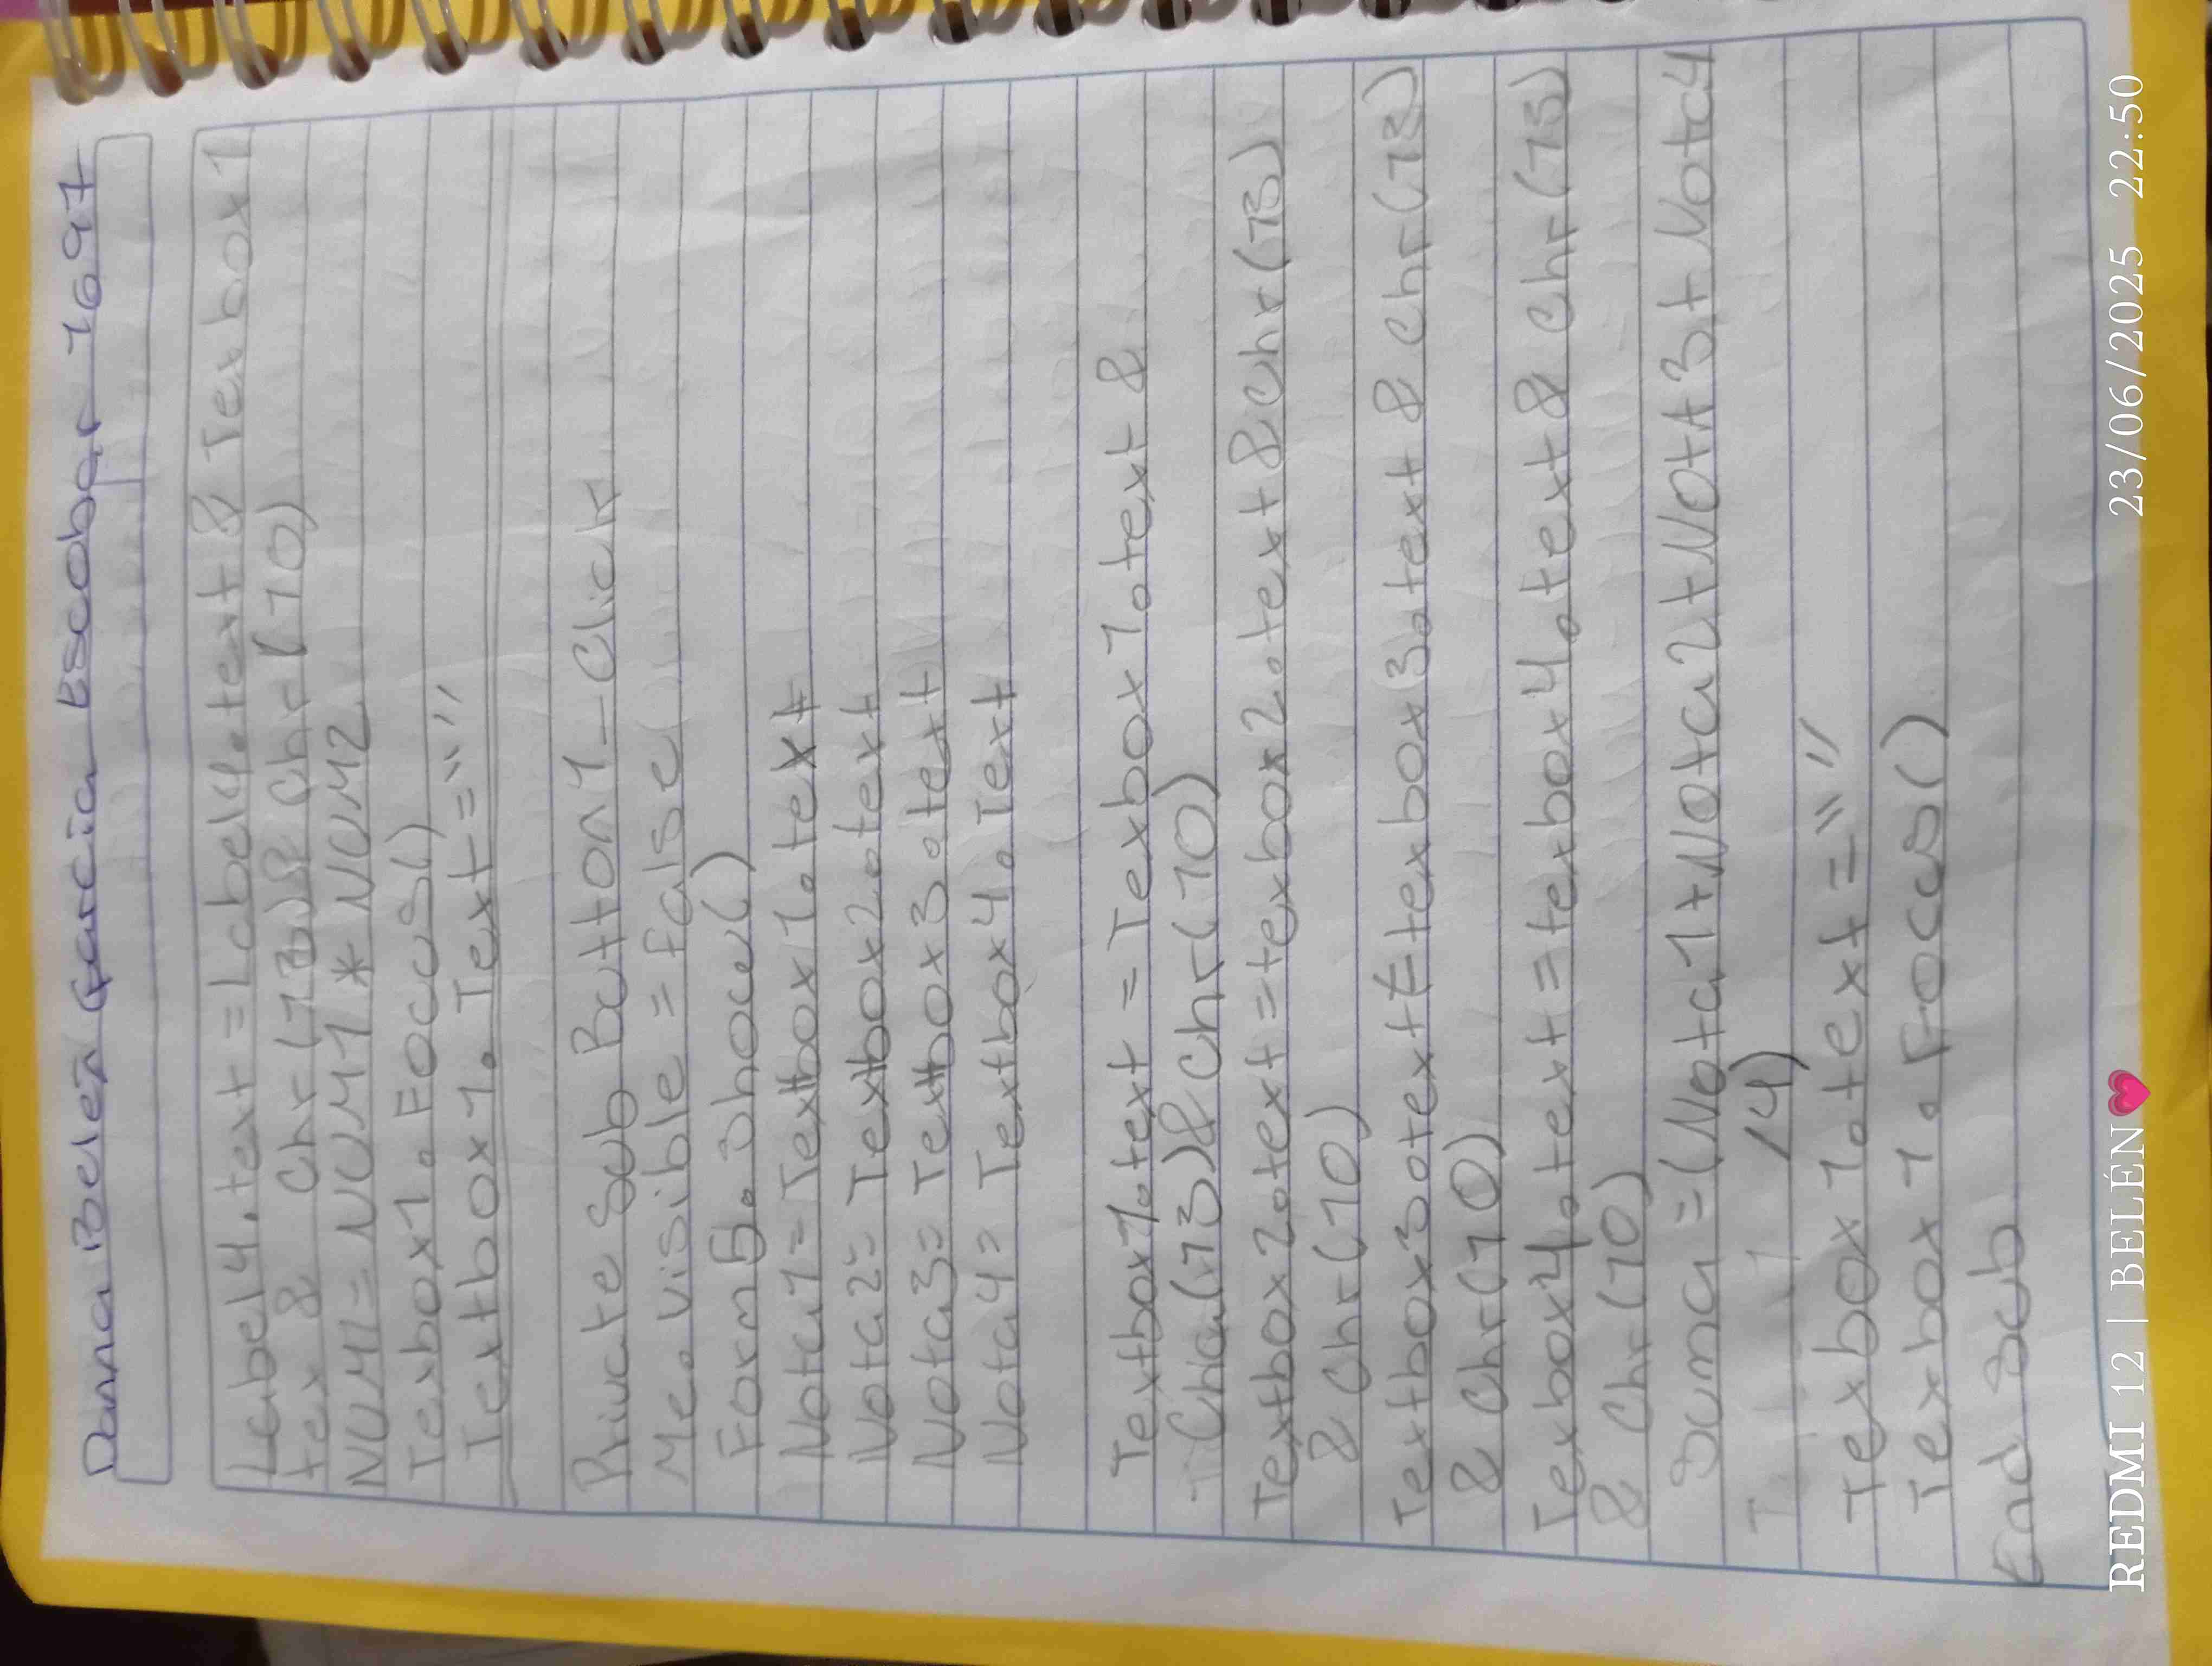 Danna Belen Garcia Escobar 1697
Label4.text = Label4.text & Texbox1
tex & Chr(13) & Chr(10)
NUM1 = NUM1 * NUM2
Texbox1.Focus()
Textbox1.Text = ""
Private Sub Button1_Click
Me.visible = false
Form5.Show()
Nota1 = Textbox1.text
Nota2 = Textbox2.text
Nota3 = Textbox3.text
Nota4 = Textbox4.Text
Textbox1.text = Texbox1.text &
Cha(13) & Chr(10)
Textbox2.text = texbox2.text & Chr(13)
& Chr(10)
Textbox3.text = texbox3.text & Chr(13)
& Chr(10)
Texbox4.text = texbox4.text & Chr(13)
& Chr(10)
Suma = (Nota1+Nota2+Nota3+Nota4
/4)
Texbox1.text = ""
Texbox1.Focus()
End Sub
REDMI 12 | BELÉN💗 23/06/2025 22:50